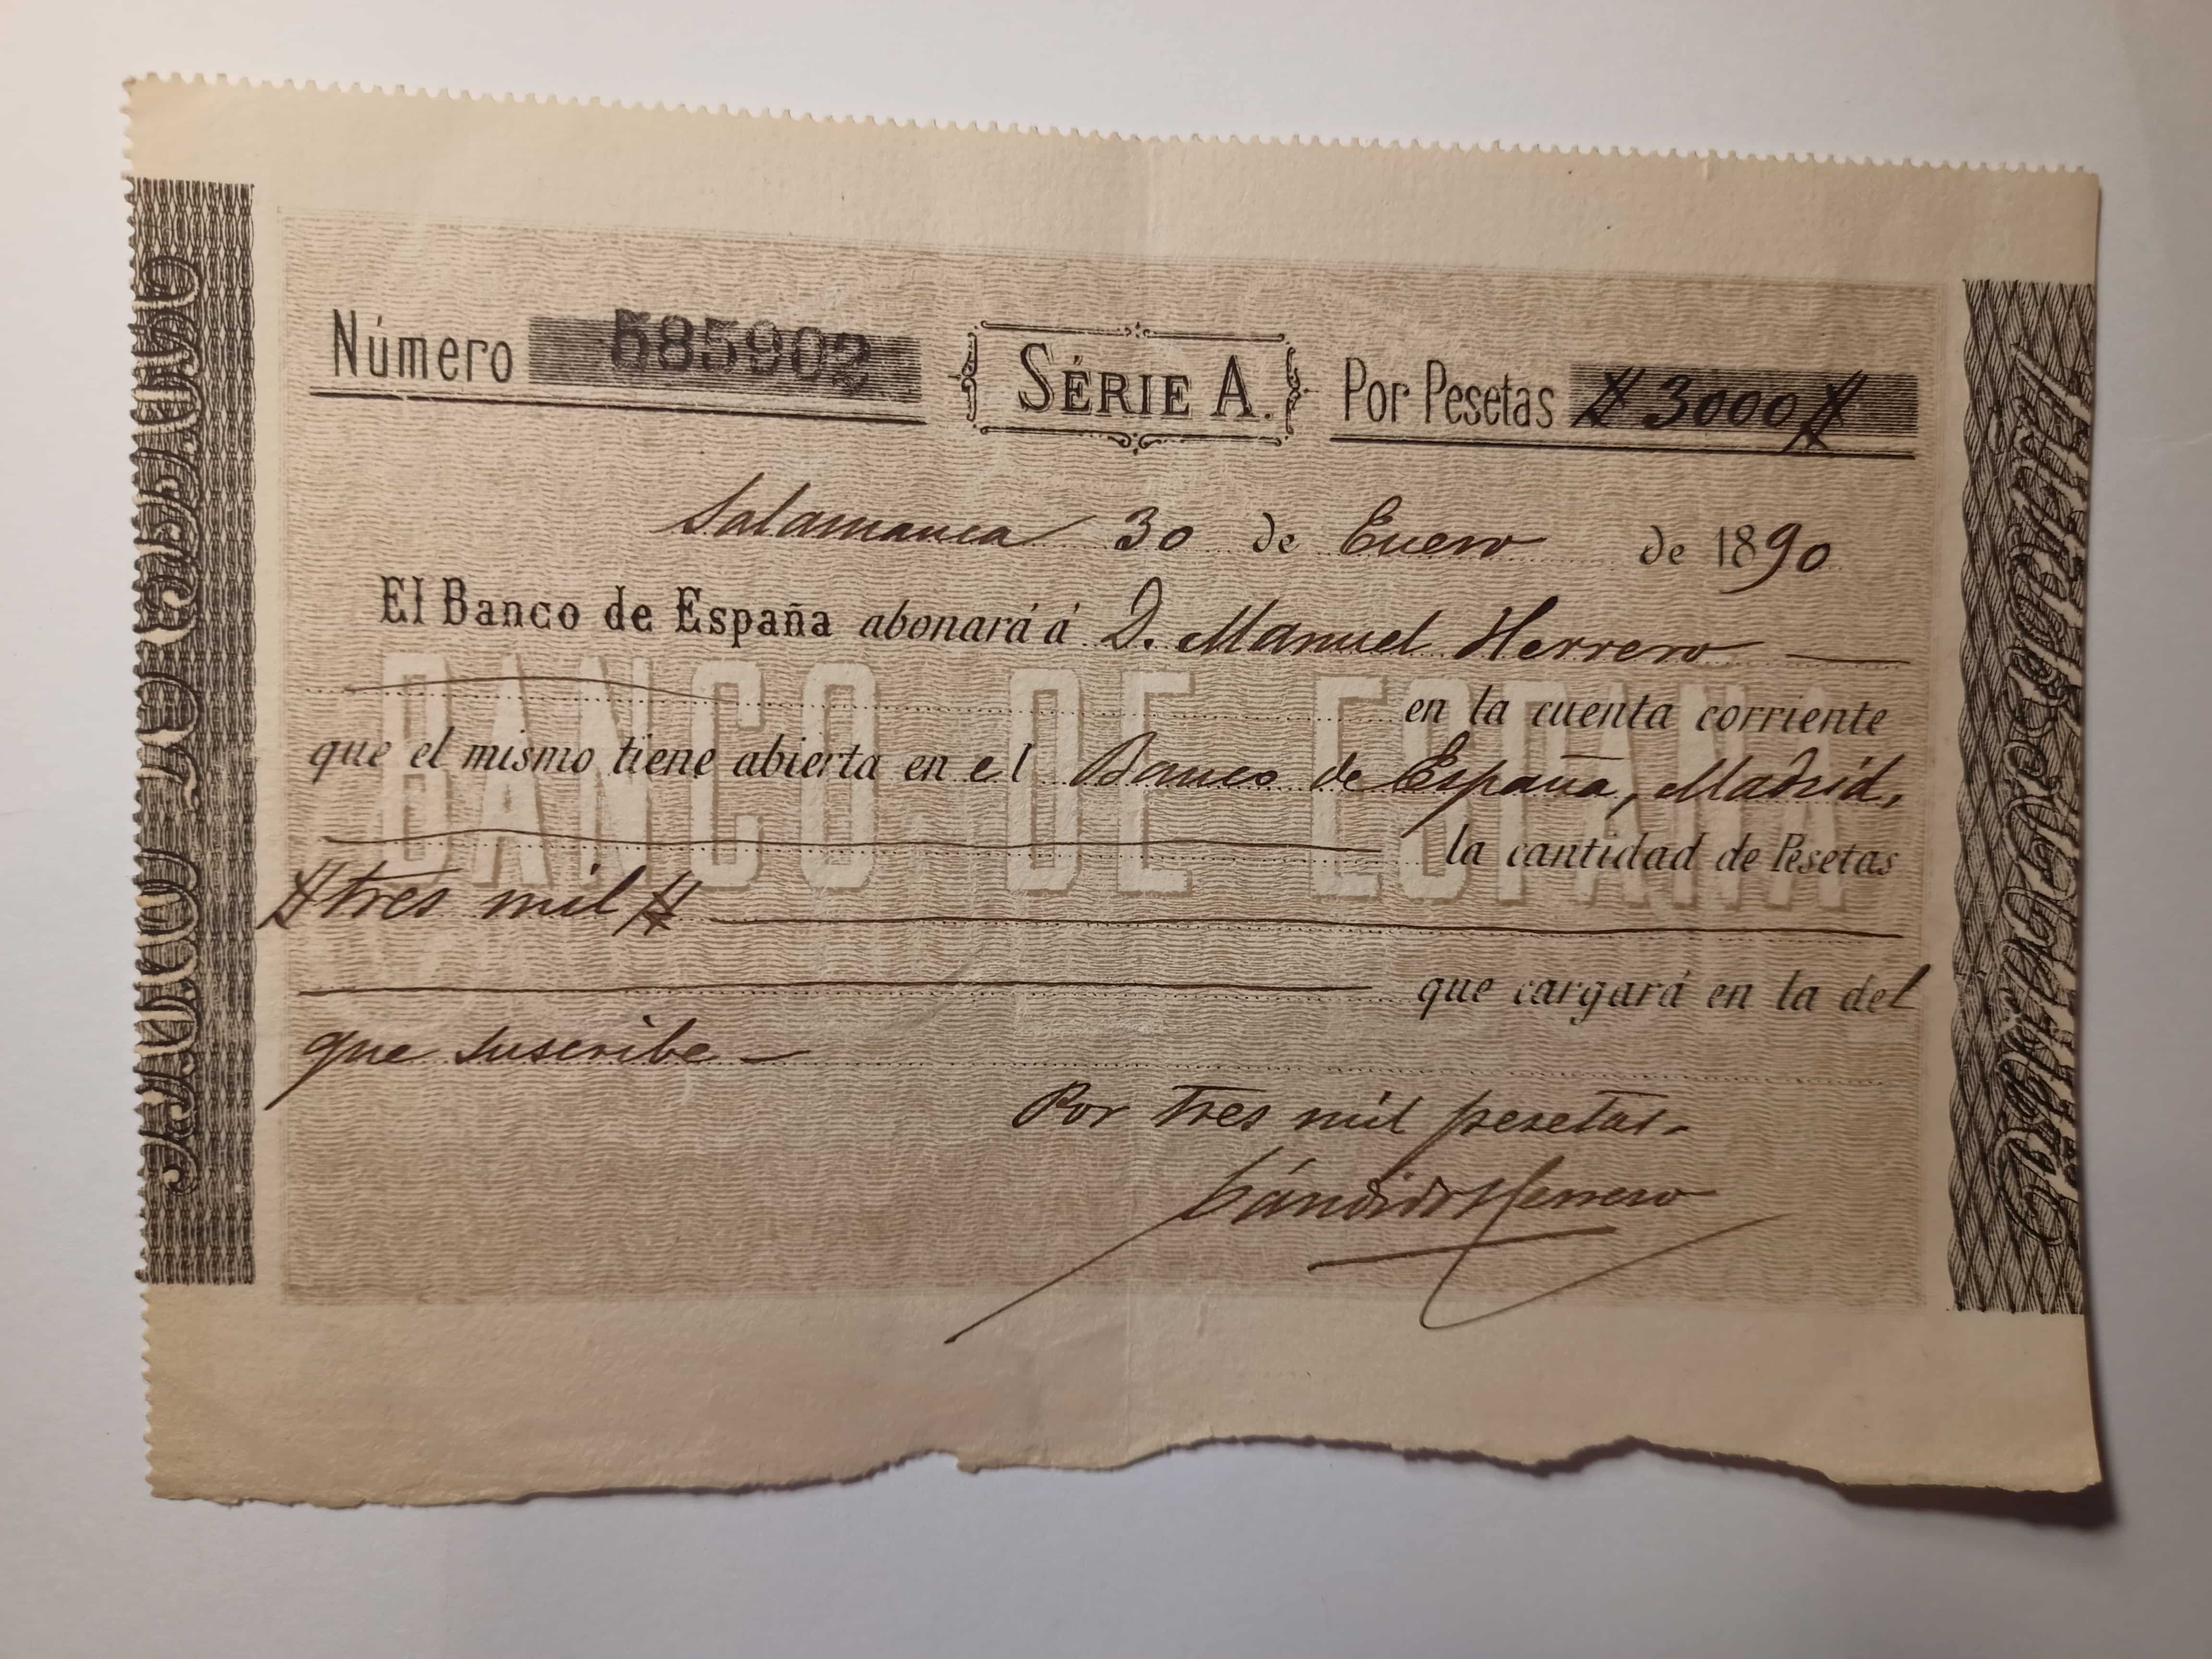 Número 585902 SÉRIE A. Por Pesetas 3000
Salamanca 30 de Enero de 1890
El Banco de España abonará á D. Manuel Herrero
en la cuenta corriente
que el mismo tiene abierta en el Banco de España, Madrid,
BANCO DE ESPAÑA
la cantidad de Pesetas
tres mil
que cargará en la del
que suscribe
Por tres mil pesetas.
Cándido Herrero